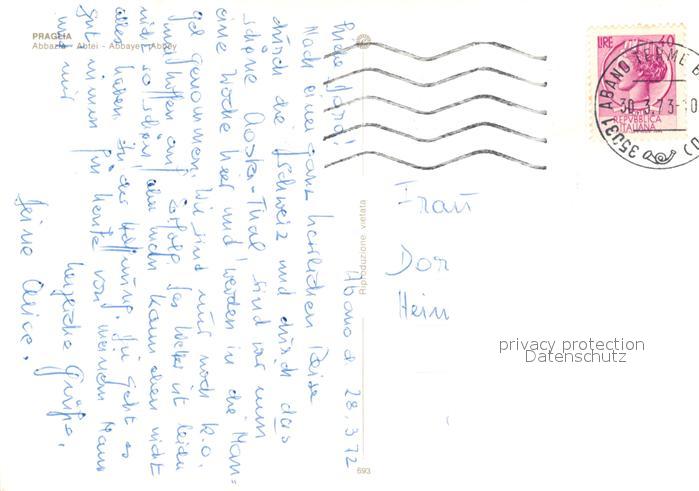 PRAGLIA
Abbazia - Abtei - Abbaye - Abbey
LIRE 40
REPVBBLICA
ITALIANA
35031 ABANO TERME
30.3.73-10
Abano d. 28.3.72
Liebe Dora!
Nach einer ganz herrlichen Reise
durch die Schweiz und durch das
schöne Aosta-Thal sind wir nun
eine Woche hier und werden in die Man=
gel genommen. Wir sind nur noch k.o.
und hoffen auf Erfolg. Das Wetter ist leider
nicht so schön, aber man kann eben nicht
alles haben. In der Hoffnung, Dir geht es
gut nimm für heute von meinem Mann
und mir
herzliche Grüße,
Deine Alice.
Riproduzione vietata
693
Frau
Dor
Hein
privacy protection
Datenschutz